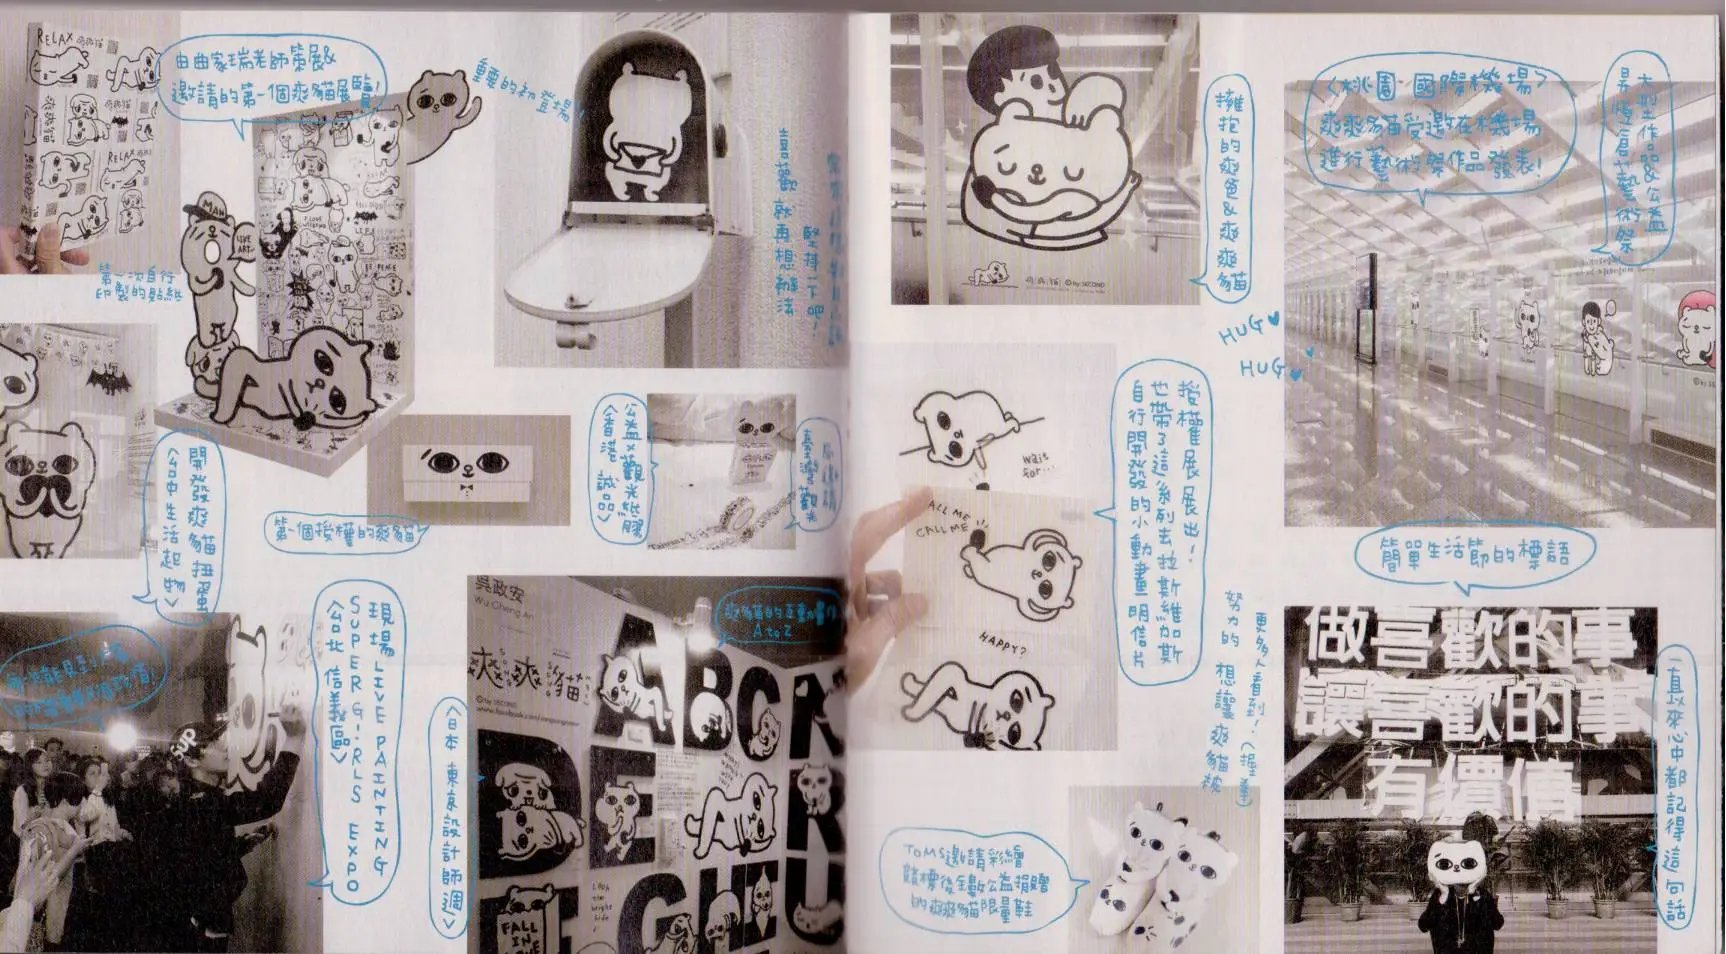 RELAX
由曲家瑞老師策展&
邀請的第一個爽貓展覽!
重要的初登場!
喜歡就再想辦法
堅持下吧!
第一次自行
印製的貼紙
MAN
LIVE
ART
RELAX
開發爽爽貓扭蛋
<台中生活起物>
第一個授權的爽爽貓
公益×觀光紙膠
<香港 誠品>
臺灣觀光
現場LIVE PAINTING
SUPER GIRLS EXPO
<台北 信義區>
sup
<日本 東京設計師週>
吳政安
Wu Cheng An
爽爽貓
©by SECOND
A to Z
ABC
DE
GHI
FALL
IN
擁抱的爽爸&爽爽貓
©by SECOND
HUG
HUG
<桃園-國際機場>
爽爽貓受邀在機場
進行藝術祭作品發表!
大型作品&公益
藝術祭
wait
for...
ALL ME
CALL ME
HAPPY?
授權展展出!
也帶了這系列去拉斯維加斯
自行開發的小動畫明信片
更多人看到!(握拳)
努力的 想讓 爽貓被
簡單生活節的標語
做喜歡的事
讓喜歡的事
有價值
一直以來心中都記得這句話
TOMS邀請彩繪
競標後全數公益捐贈
的爽爽貓限量鞋